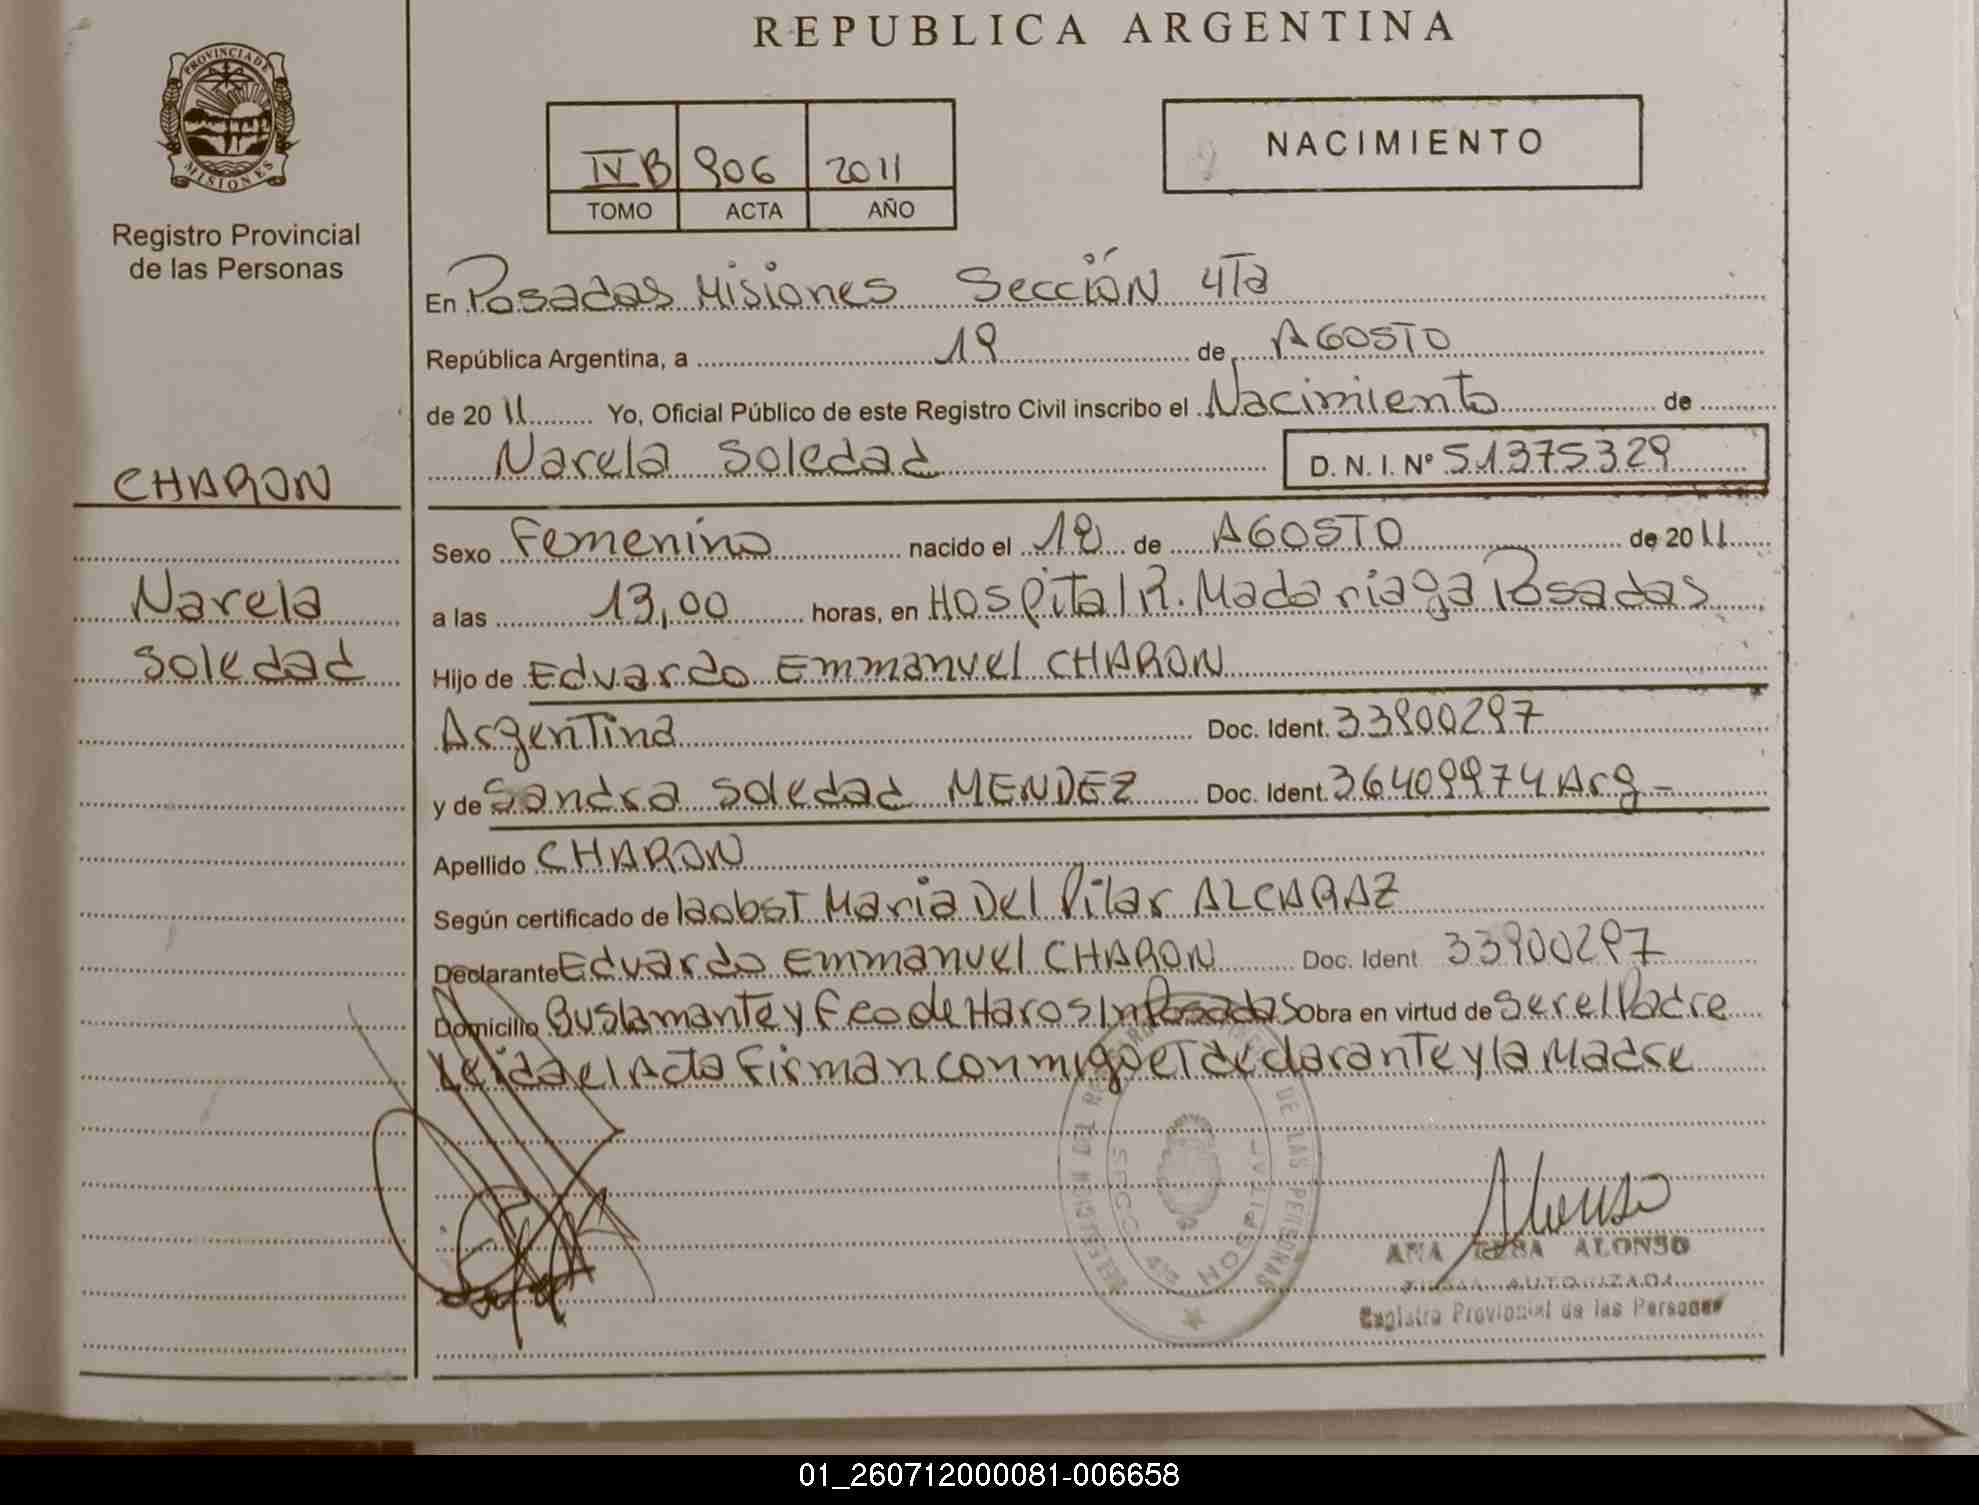 REPUBLICA ARGENTINA
PROVINCIA DE MISIONES
Registro Provincial
de las Personas
IV B 906 2011
TOMO ACTA AÑO
NACIMIENTO
En Posadas Misiones Sección 4Ta
República Argentina, a 19 de AGOSTO
de 2011 Yo, Oficial Público de este Registro Civil inscribo el Nacimiento de
Narela Soledad D. N. I. Nº 51375329
CHARON
Narela
Soledad
Sexo Femenino nacido el 18 de AGOSTO de 2011
a las 13,00 horas, en Hospital R. Madariaga Posadas
Hijo de Eduardo Emmanuel CHARON
Argentina Doc. Ident. 33900297
y de Sandra Soledad MENDEZ Doc. Ident. 36409974 Arg -
Apellido CHARON
Según certificado de laobst Maria Del Pilar ALCARAZ
Declarante Eduardo Emmanuel CHARON Doc. Ident 33900297
Domicilio Bustamante y Fco de Haro S/n Posadas Obra en virtud de Ser el Padre
Leida el Acta Firman conmigo el declarante y la Madre
DE LAS PERSONAS
SECC 4ta HOSPITAL
Alonso
ANA ROSA ALONSO
FIRMA AUTORIZADA
Registro Provincial de las Personas
01_260712000081-006658